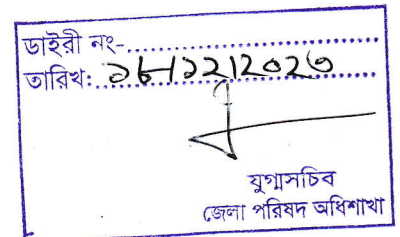 ডাইরী নং-....................................
তারিখ: ১৮/১২/২০২৩
যুগ্মসচিব
জেলা পরিষদ অধিশাখা